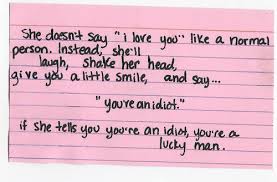 She doesn't say "i love you" like a normal
person. Instead, she'll
laugh, shake her head,
give you a little smile, and say...
"you're an idiot."
if she tells you you're an idiot, you're a
lucky man.